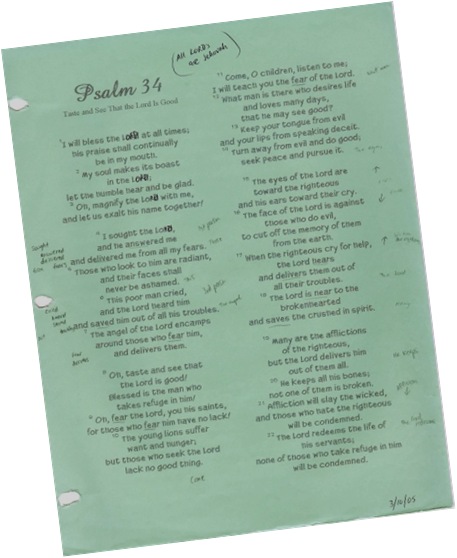 (All LORD's
are Jehovah)
Psalm 34
Taste and See That the Lord Is Good
1 I will bless the LORD at all times;
his praise shall continually
be in my mouth.
2 My soul makes its boast
in the LORD;
let the humble hear and be glad.
3 Oh, magnify the LORD with me,
and let us exalt his name together!
4 I sought the LORD,
and he answered me
and delivered me from all my fears.
5 Those who look to him are radiant,
and their faces shall
never be ashamed.
6 This poor man cried,
and the Lord heard him
and saved him out of all his troubles.
7 The angel of the Lord encamps
around those who fear him,
and delivers them.
8 Oh, taste and see that
the Lord is good!
Blessed is the man who
takes refuge in him!
9 Oh, fear the Lord, you his saints,
for those who fear him have no lack!
10 The young lions suffer
want and hunger;
but those who seek the Lord
lack no good thing.
11 Come, O children, listen to me;
I will teach you the fear of the Lord.
12 What man is there who desires life
and loves many days,
that he may see good?
13 Keep your tongue from evil
and your lips from speaking deceit.
14 Turn away from evil and do good;
seek peace and pursue it.
15 The eyes of the Lord are
toward the righteous
and his ears toward their cry.
16 The face of the Lord is against
those who do evil,
to cut off the memory of them
from the earth.
17 When the righteous cry for help,
the Lord hears
and delivers them out of
all their troubles.
18 The Lord is near to the
brokenhearted
and saves the crushed in spirit.
19 Many are the afflictions
of the righteous,
but the Lord delivers him
out of them all.
20 He keeps all his bones;
not one of them is broken.
21 Affliction will slay the wicked,
and those who hate the righteous
will be condemned.
22 The Lord redeems the life of
his servants;
none of those who take refuge in him
will be condemned.
3/16/05